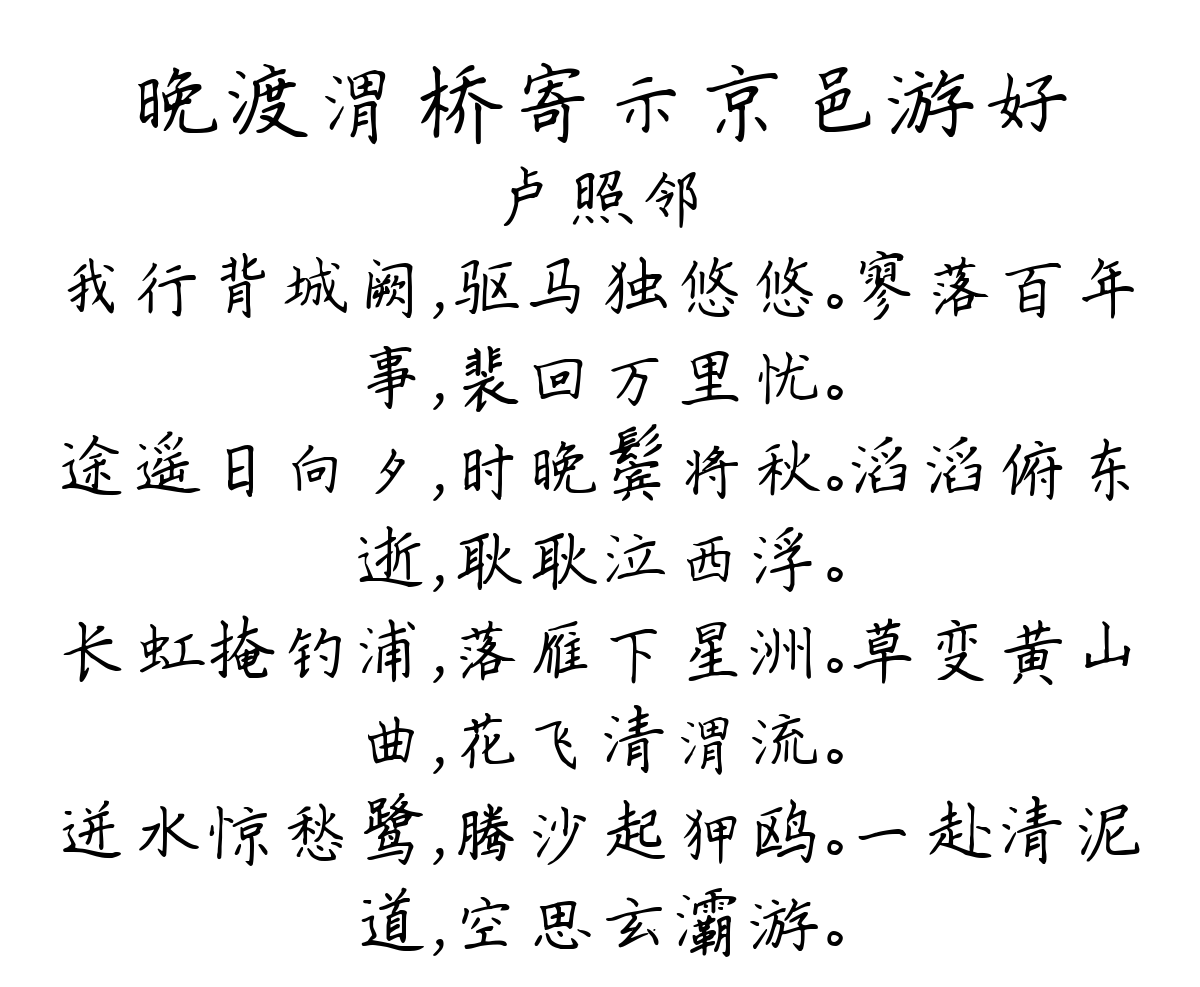 晚渡渭桥寄示京邑游好
卢照邻
我行背城阙,驱马独悠悠。寥落百年
事,裴回万里忧。
途遥日向夕,时晚鬓将秋。滔滔俯东
逝,耿耿泣西浮。
长虹掩钓浦,落雁下星洲。草变黄山
曲,花飞清渭流。
迸水惊愁鹭,腾沙起狎鸥。一赴清泥
道,空思玄灞游。